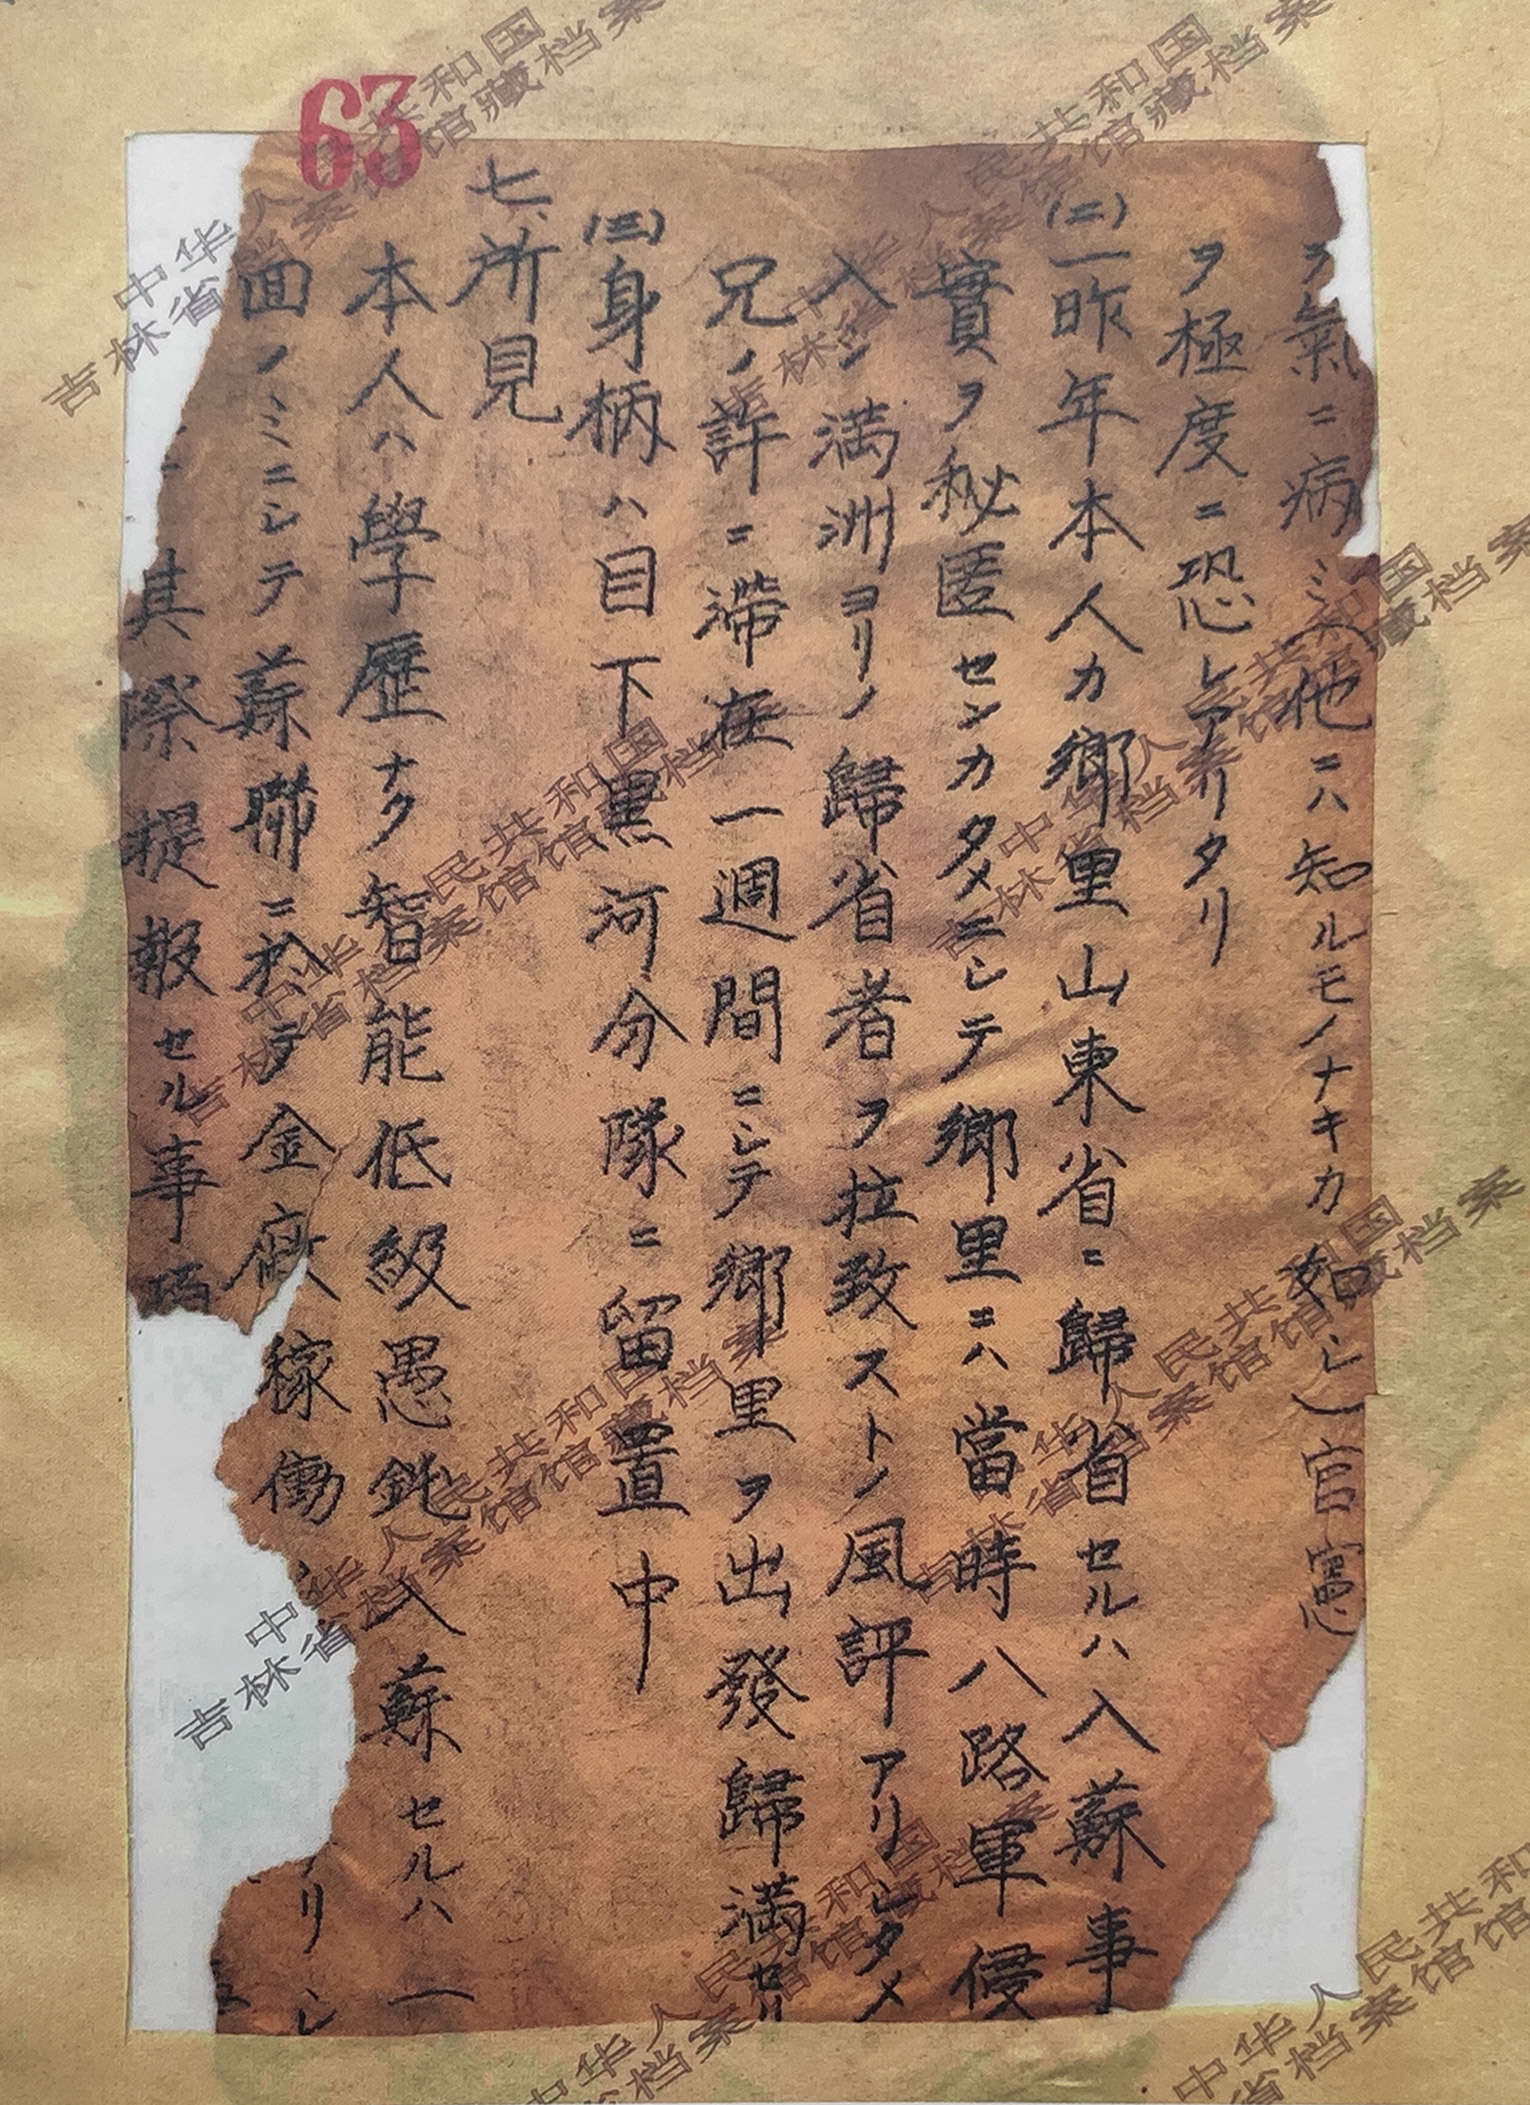 63
ヲ氣ニ病ミ(他ニハ知ルモノナキカ如シ)官憲
ヲ極度ニ恐レアリタリ
(二)一昨年本人カ鄉里山東省ニ歸省セルハ入蘇事
實ヲ秘匿センカタメニシテ鄉里ニハ當時八路軍侵
入シ満洲ヨリノ歸省者ヲ拉致ストノ風評アリシタメ
兄ノ許ニ滞在一週間ニシテ鄉里ヲ出發歸満セリ
(三)身柄ハ目下黒河分隊ニ留置中
七、所見
本人ハ學歷ナク智能低級愚鈍入蘇セルハ一
面ノミニシテ蘇聯ニ於テ金廠稼働
リシ
其際提報セル事項
中华人民共和国
吉林省档案馆馆藏档案